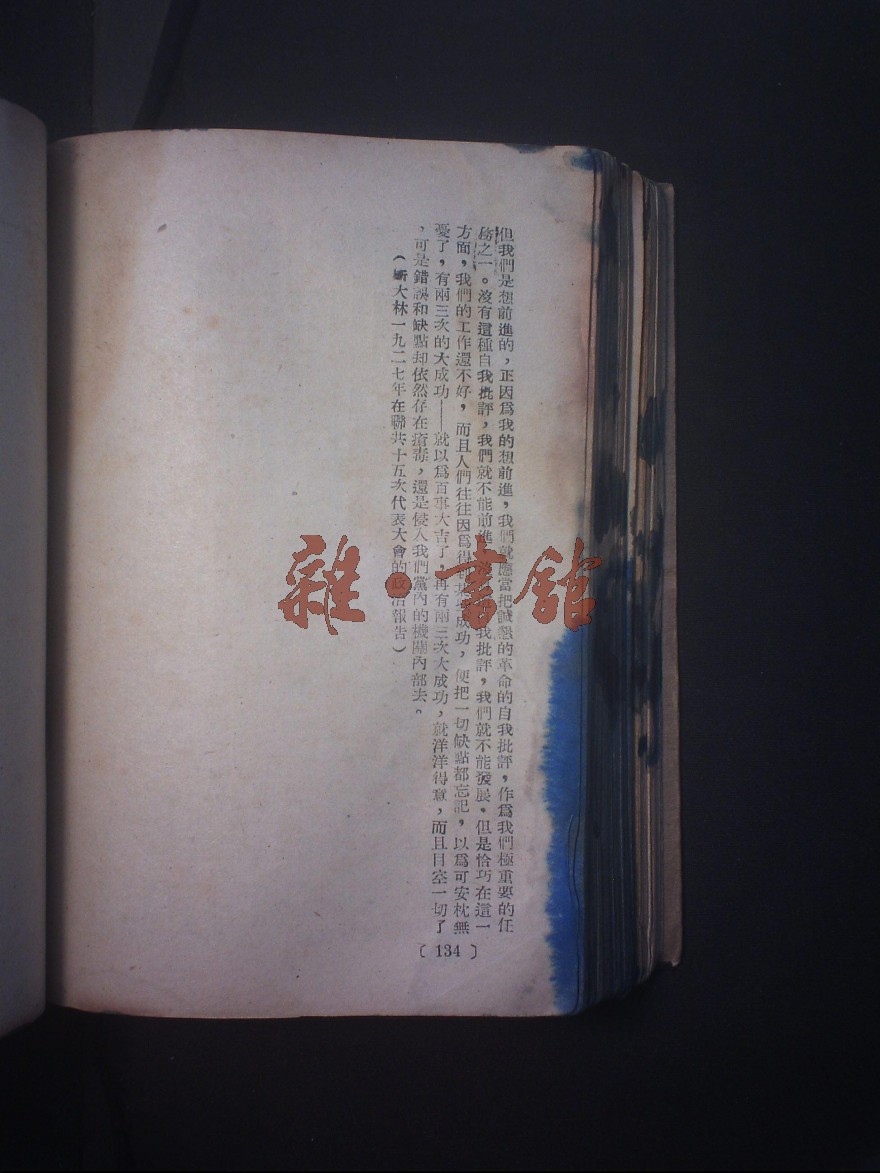 但我們是想前進的，正因爲我的想前進，我們就應當把誠懇的革命的自我批評，作爲我們極重要的任
務之一。沒有這種自我批評，我們就不能前進 我批評，我們就不能發展。但是恰巧在這一
方面，我們的工作還不好，而且人們往往因爲得 成功，便把一切缺點都忘記，以爲可安枕無
憂了，有兩三次的大成功——就以爲百事大吉了，再有兩三次大成功，就洋洋得意，而且目空一切了
，可是錯誤和缺點却依然存在瘡毒，還是侵入我們黨內的機關內部去。
（斯大林一九二七年在聯共十五次代表大會的政治報告）
〔134〕
雜·書館